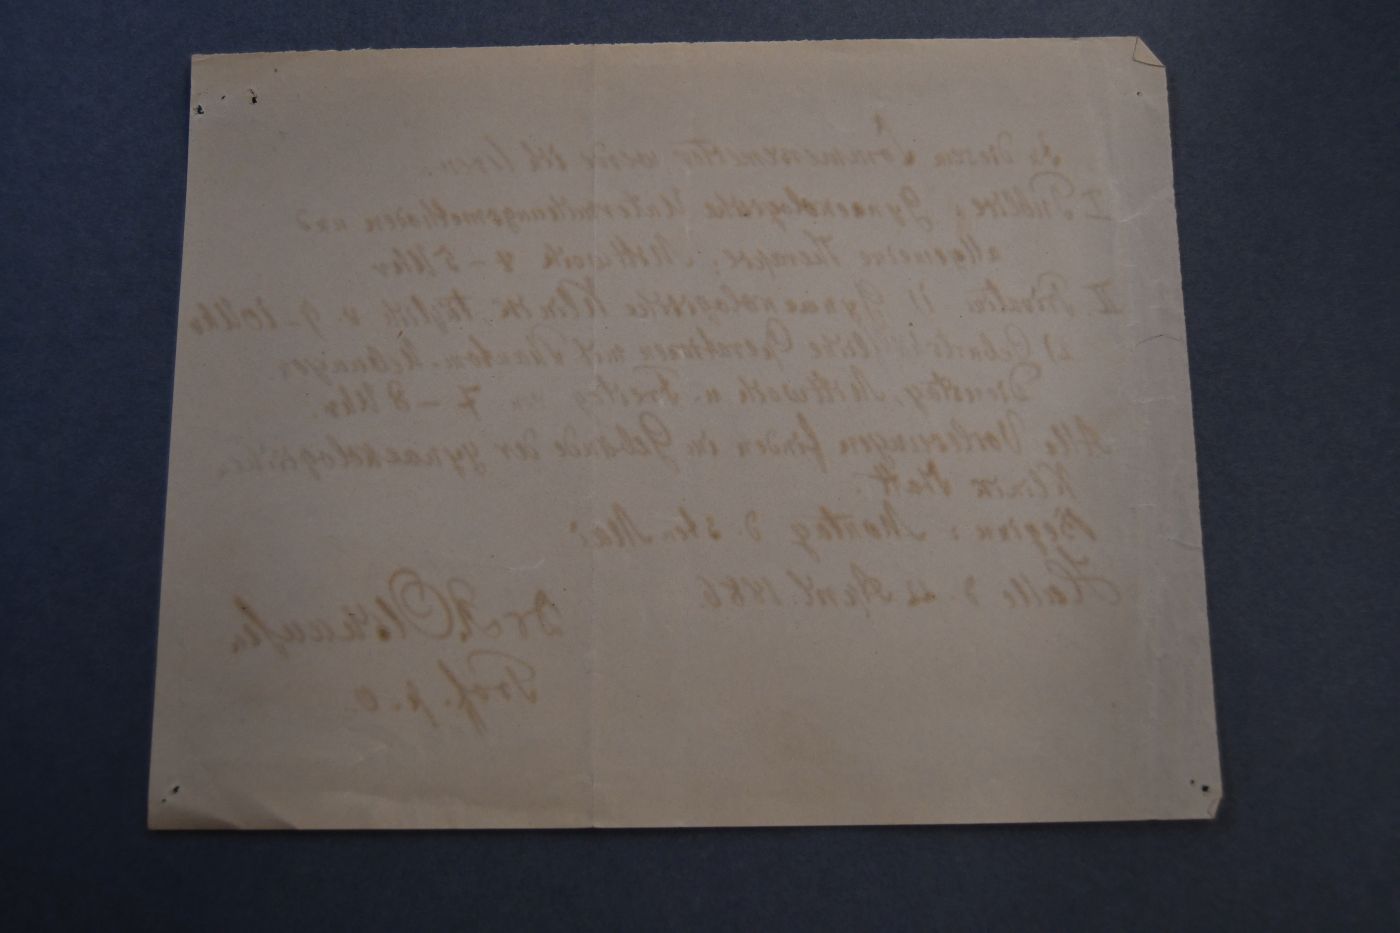 In diesem Sommersemester werde ich lesen.
I Publice, Gynaekologische Untersuchungsmethoden und
allgemeine Therapie, Mittwoch 4 – 5 Uhr
II Privatim 1) Gynaekologische Klinik, täglich v 9 – 10 Uhr
2) Geburtshilfliche Operationen mit Phantom-Uebungen
Dienstag, Mittwoch u. Freitag von 7 – 8 Uhr.
Alle Vorlesungen finden im Gebäude der gynaekologischen
Klinik statt.
Beginn: Montag d. 3ten Mai
Halle d. April 1886
Dr R Olshausen
Prof. p. o.